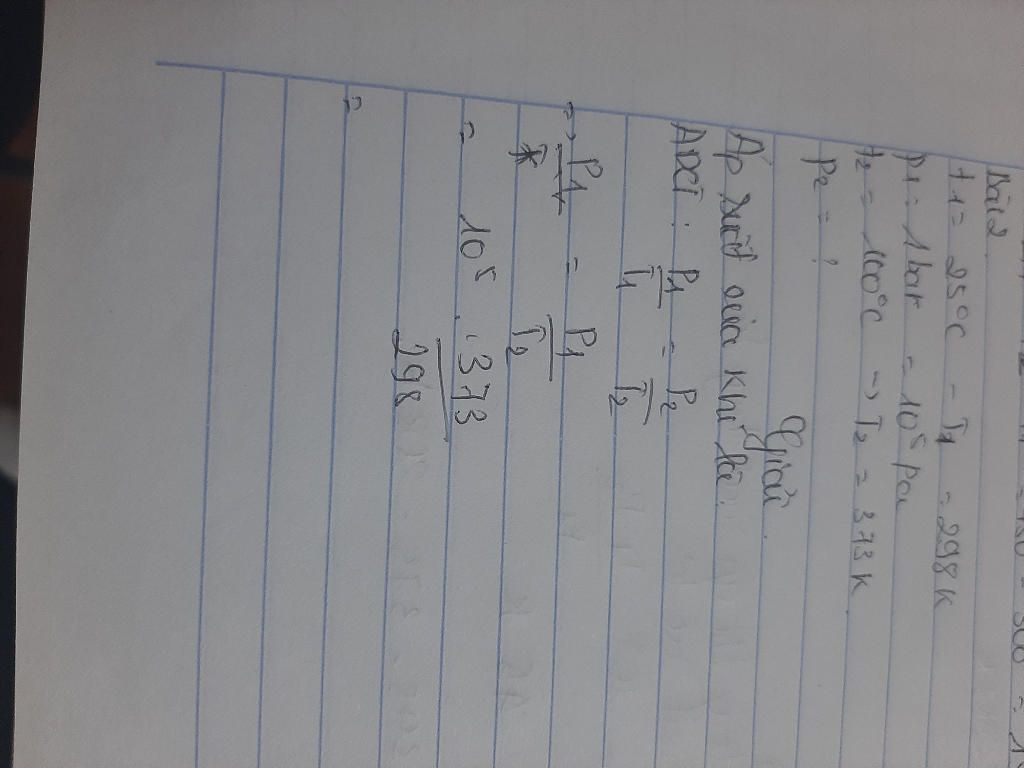 Bài 2
t1 = 25°C - T1 = 298K
P1 = 1bar = 10⁵ pa
t2 = 100°C -> T2 = 373K
P2 = ?
Giải
Áp suất của khí là:
ADCT: P1/T1 = P2/T2
=> P1/T = P1/T2
= 10⁵ . 373/298
=